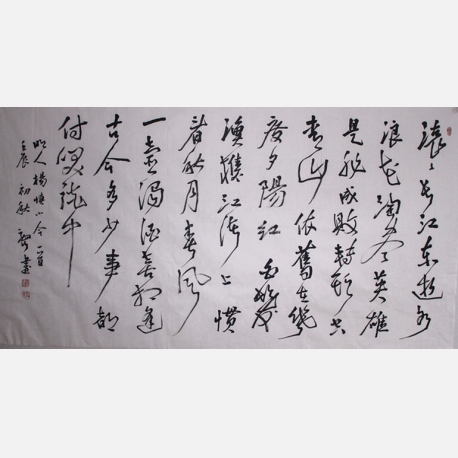 滚〻长江东逝水
浪花淘尽英雄
是非成败转头空
青山依旧在几
度夕陽红 白发
渔樵江渚上惯
看秋月春风
一壶浊酒喜相逢
古今多少事都
付笑谈中
明人楊慎小令一首
壬辰初秋 書